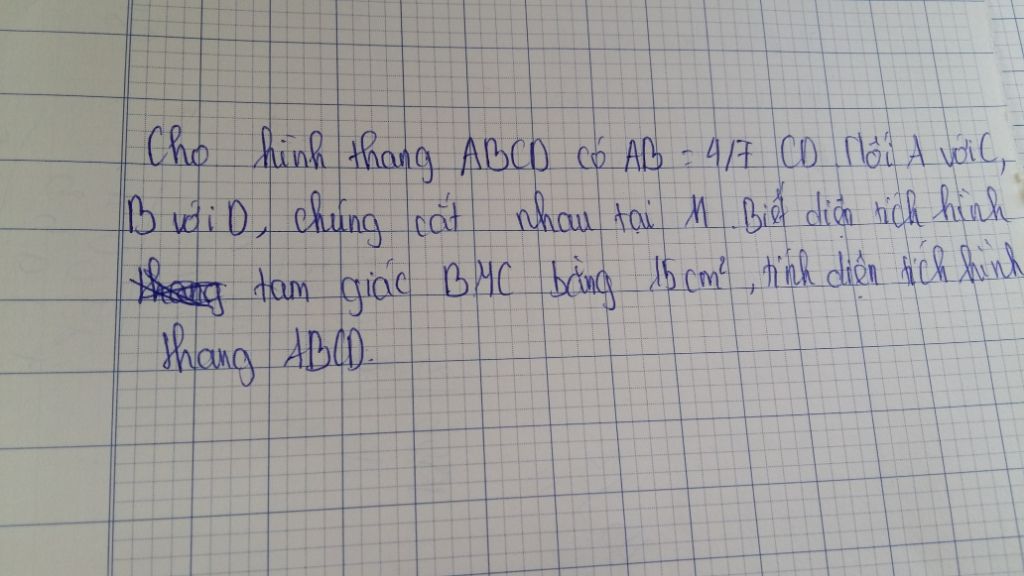 Cho hình thang ABCD có AB = 4/7 CD Nối A với C,
B với D, chúng cắt nhau tại M. Biết diện tích hình
tam giác BMC bằng 15 cm², tính diện tích hình
thang ABCD.